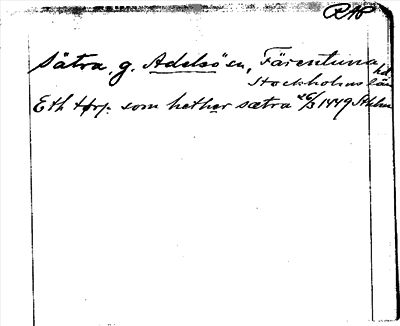 RAP
Sätra, g. Adelsö sn, Färentuna hd
Stockholms län
Eth torp. som hether sætra 26/3 1449 Sthlm